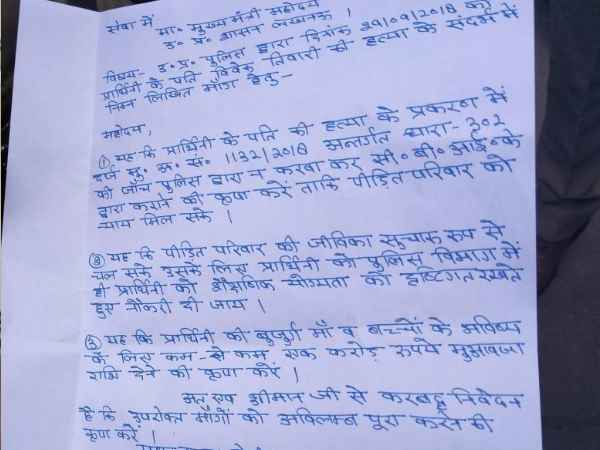 सेवा में
मा० मुख्य मंत्री महोदय
उ० प्र० शासन लखनऊ ।
विषय- उ० प्र० पुलिस द्वारा दिनांक 29/09/2018 को
प्रार्थिनी के पति विवेक तिवारी की हत्या के संदर्भ में
निम्न लिखित माँग हेतु-
महोदय,
① यह कि प्रार्थिनी के पति की हत्या के प्रकरण में
दर्ज मु० अ० सं० 1132/2018 अन्तर्गत धारा- 302
की जाँच पुलिस द्वारा न करवा कर सी० बी० आई० के
द्वारा कराने की कृपा करें ताकि पीड़ित परिवार को
न्याय मिल सके ।
② यह कि पीड़ित परिवार की जीविका सुचारू रूप से
चल सके उसके लिए प्रार्थिनी को पुलिस विभाग में
ही प्रार्थिनी की शैक्षणिक योग्यता को दृष्टिगत रखते
हुए नौकरी दी जाय ।
③ यह कि प्रार्थिनी की बुजुर्ग माँ व बच्चों के भविष्य
के लिए कम-से कम एक करोड़ रूपये मुआवजा
राशि देने की कृपा करें ।
अतः एव श्रीमान जी से करबद्ध निवेदन
है कि उपरोक्त माँगों को अविलम्ब पूरा करने की
कृपा करें ।